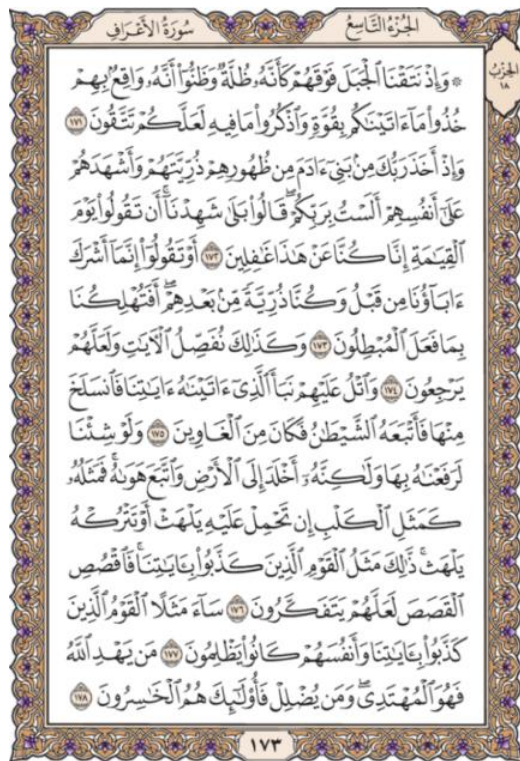 سُورَةُ الأَعْرَافِ
الجُزْءُ التَّاسِعُ
الحِزْبُ
١٨
۞ وَإِذ نَّتَقۡنَا ٱلۡجَبَلَ فَوۡقَهُمۡ كَأَنَّهُۥ ظُلَّةٞ وَظَنُّوٓاْ أَنَّهُۥ وَاقِعُۢ بِهِمۡ
خُذُواْ مَآ ءَاتَيۡنَٰكُم بِقُوَّةٖ وَٱذۡكُرُواْ مَا فِيهِ لَعَلَّكُمۡ تَتَّقُونَ ١٧١
وَإِذۡ أَخَذَ رَبُّكَ مِنۢ بَنِيٓ ءَادَمَ مِن ظُهُورِهِمۡ ذُرِّيَّتَهُمۡ وَأَشۡهَدَهُمۡ
عَلَىٰٓ أَنفُسِهِمۡ أَلَسۡتُ بِرَبِّكُمۡۖ قَالُواْ بَلَىٰ شَهِدۡنَآۚ أَن تَقُولُواْ يَوۡمَ
ٱلۡقِيَٰمَةِ إِنَّا كُنَّا عَنۡ هَٰذَا غَٰفِلِينَ ١٧٢ أَوۡ تَقُولُوٓاْ إِنَّمَآ أَشۡرَكَ
ءَابَآؤُنَا مِن قَبۡلُ وَكُنَّا ذُرِّيَّةٗ مِّنۢ بَعۡدِهِمۡۖ أَفَتُهۡلِكُنَا
بِمَا فَعَلَ ٱلۡمُبۡطِلُونَ ١٧٣ وَكَذَٰلِكَ نُفَصِّلُ ٱلۡأٓيَٰتِ وَلَعَلَّهُمۡ
يَرۡجِعُونَ ١٧٤ وَٱتۡلُ عَلَيۡهِمۡ نَبَأَ ٱلَّذِيٓ ءَاتَيۡنَٰهُ ءَايَٰتِنَا فَٱنسَلَخَ
مِنۡهَا فَأَتۡبَعَهُ ٱلشَّيۡطَٰنُ فَكَانَ مِنَ ٱلۡغَاوِينَ ١٧٥ وَلَوۡ شِئۡنَا
لَرَفَعۡنَٰهُ بِهَا وَلَٰكِنَّهُۥٓ أَخۡلَدَ إِلَى ٱلۡأَرۡضِ وَٱتَّبَعَ هَوَىٰهُۚ فَمَثَلُهُۥ
كَمَثَلِ ٱلۡكَلۡبِ إِن تَحۡمِلۡ عَلَيۡهِ يَلۡهَثۡ أَوۡ تَتۡرُكۡهُ
يَلۡهَثۚ ذَّٰلِكَ مَثَلُ ٱلۡقَوۡمِ ٱلَّذِينَ كَذَّبُواْ بِـَٔايَٰتِنَاۚ فَٱقۡصُصِ
ٱلۡقَصَصَ لَعَلَّهُمۡ يَتَفَكَّرُونَ ١٧٦ سَآءَ مَثَلًا ٱلۡقَوۡمُ ٱلَّذِينَ
كَذَّبُواْ بِـَٔايَٰتِنَا وَأَنفُسَهُمۡ كَانُواْ يَظۡلِمُونَ ١٧٧ مَن يَهۡدِ ٱللَّهُ
فَهُوَ ٱلۡمُهۡتَدِيۖ وَمَن يُضۡلِلۡ فَأُوْلَٰٓئِكَ هُمُ ٱلۡخَٰسِرُونَ ١٧٨
١٧٣